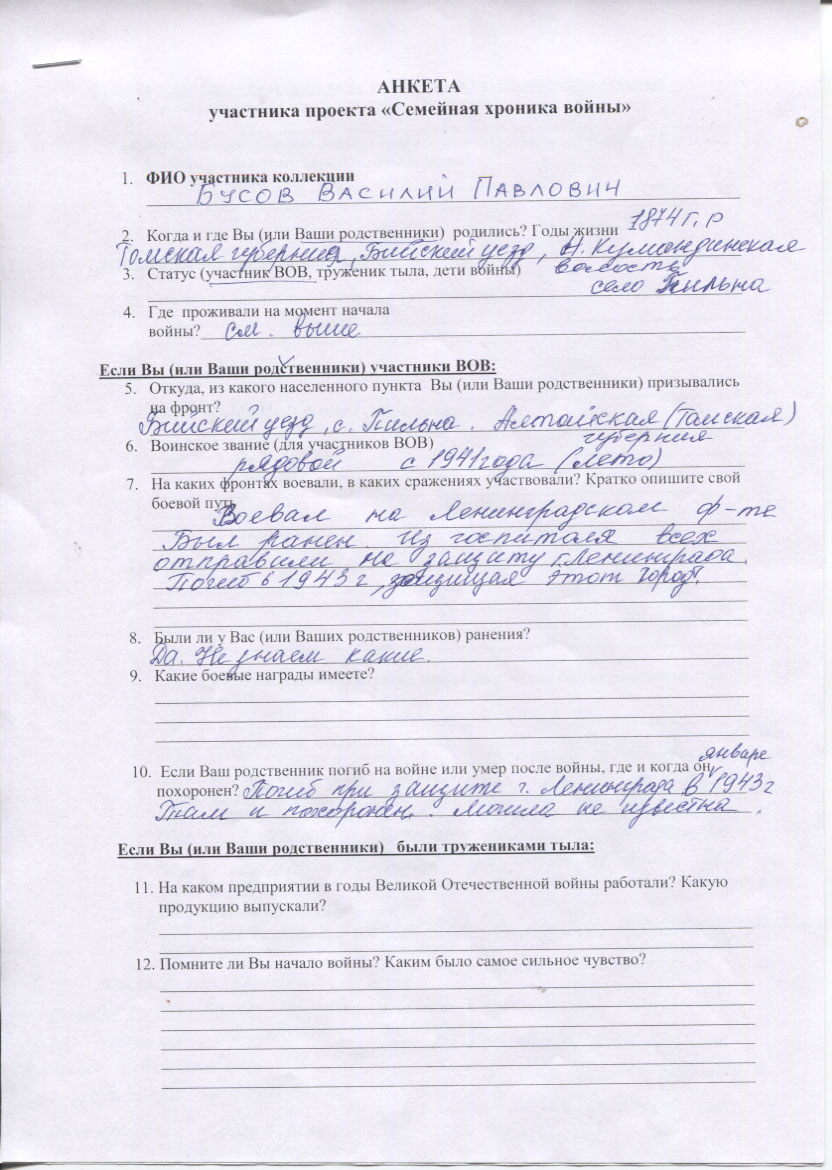 АНКЕТА
участника проекта «Семейная хроника войны»
1. ФИО участника коллекции
Бусов Василий Павлович
2. Когда и где Вы (или Ваши родственники) родились? Годы жизни 1874 г. р
Томская губерния, Бийский уезд, Н. Кумандинская
3. Статус (участник ВОВ, труженик тыла, дети войны) волость
село Пильна
4. Где проживали на момент начала
войны? см. выше
Если Вы (или Ваши родственники) участники ВОВ:
5. Откуда, из какого населенного пункта Вы (или Ваши родственники) призывались
на фронт?
Бийский уезд, с. Пильна. Алтайская (Томская)
губерния
6. Воинское звание (для участников ВОВ)
рядовой с 1941 года (лето)
7. На каких фронтах воевали, в каких сражениях участвовали? Кратко опишите свой
боевой путь
Воевал на Ленинградском ф-те
Был ранен. Из госпиталя всех
отправили на защиту г. Ленинграда.
Погиб в 1943 г, защищая этот город.
8. Были ли у Вас (или Ваших родственников) ранения?
Да. Не знаем какие.
9. Какие боевые награды имеете?
январе
10. Если Ваш родственник погиб на войне или умер после войны, где и когда он
похоронен? Погиб при защите г. Ленинграда в 1943 г
Там и похоронен. Могила не известна.
Если Вы (или Ваши родственники) были тружениками тыла:
11. На каком предприятии в годы Великой Отечественной войны работали? Какую
продукцию выпускали?
12. Помните ли Вы начало войны? Каким было самое сильное чувство?